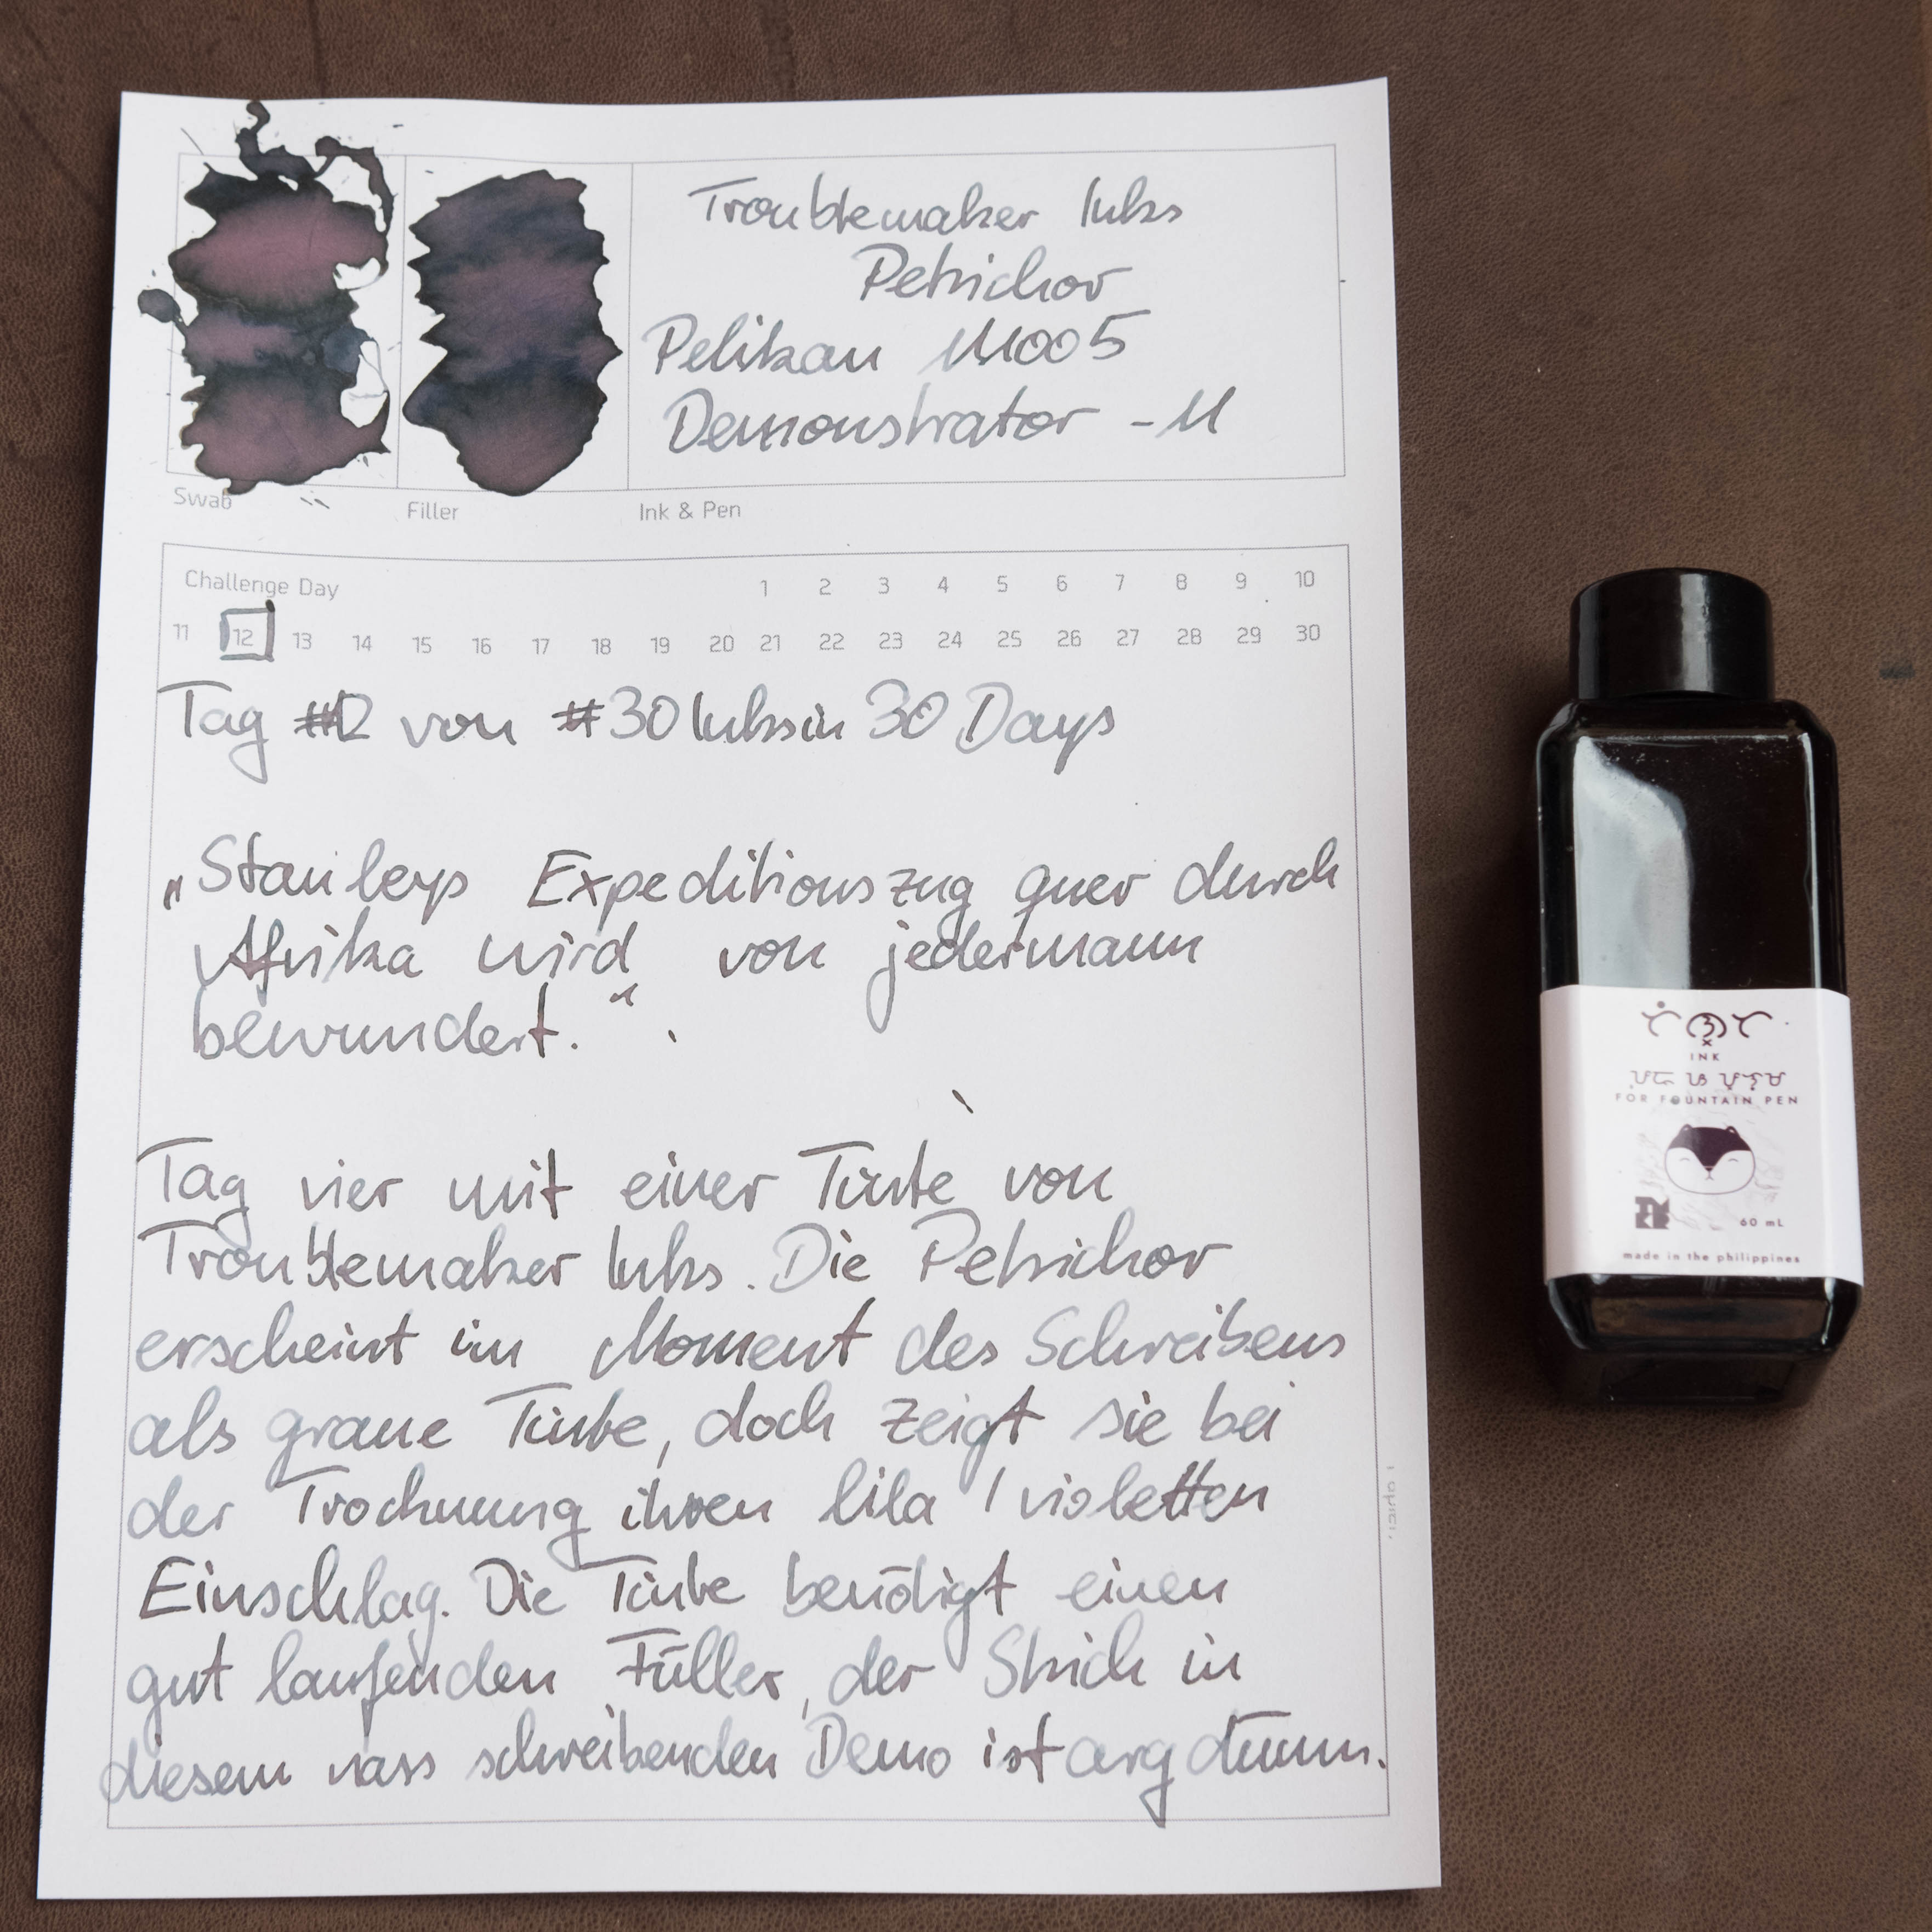 Troublemaker Inks
Petrichor
Pelikan M1005
Demonstrator - M
Swab
Filler
Ink & Pen
Challenge Day
1 2 3 4 5 6 7 8 9 10
11 12 13 14 15 16 17 18 19 20 21 22 23 24 25 26 27 28 29 30
Tag #12 von #30 Inksin 30 Days
„Stanleys Expeditionszug quer durch
Afrika wird von jedermann
bewundert.“
Tag vier mit einer Tinte von
Troublemaker Inks. Die Petrichor
erscheint im Moment des Schreibens
als graue Tinte, doch zeigt sie bei
der Trocknung ihren lila / violetten
Einschlag. Die Tinte benötigt einen
gut laufenden Füller, der Strich in
diesem nass schreibenden Demo ist arg dünn.
INK
FOR FOUNTAIN PEN
60 mL
made in the philippines